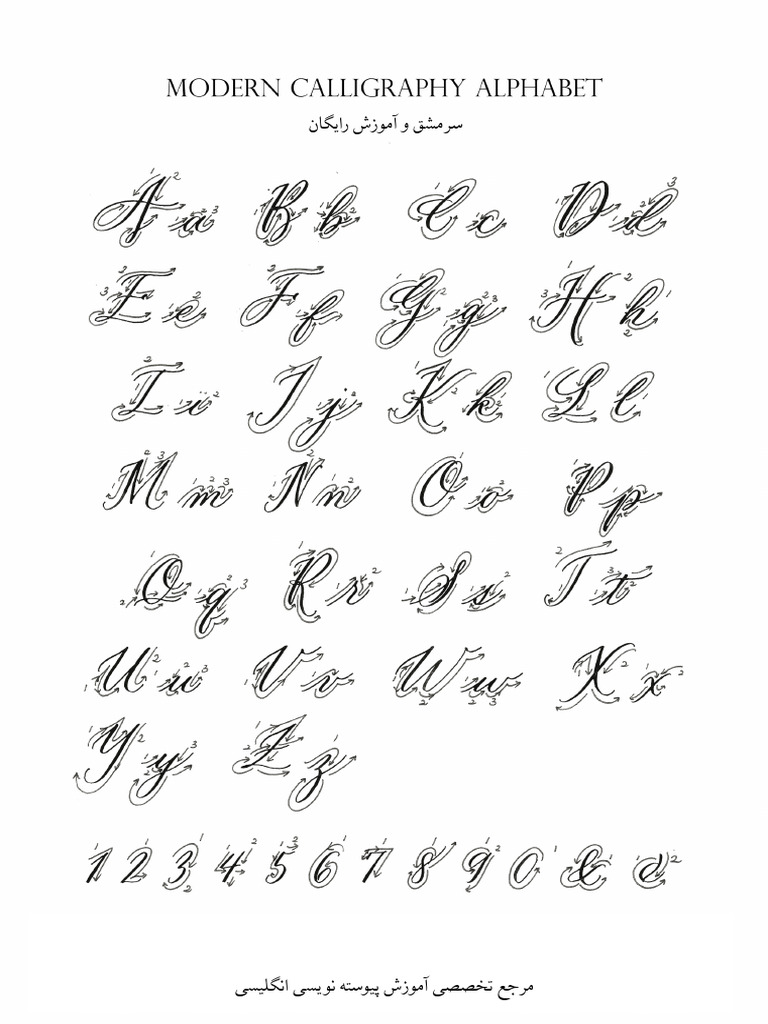 MODERN CALLIGRAPHY ALPHABET
سرمشق و آموزش رایگان
A a B b C c D d
E e F f G g H h
I i J j K k L l
M m N n O o P p
Q q R r S s T t
U u V v W w X x
Y y Z z
1 2 3 4 5 6 7 8 9 0 & @
مرجع تخصصی آموزش پیوسته نویسی انگلیسی